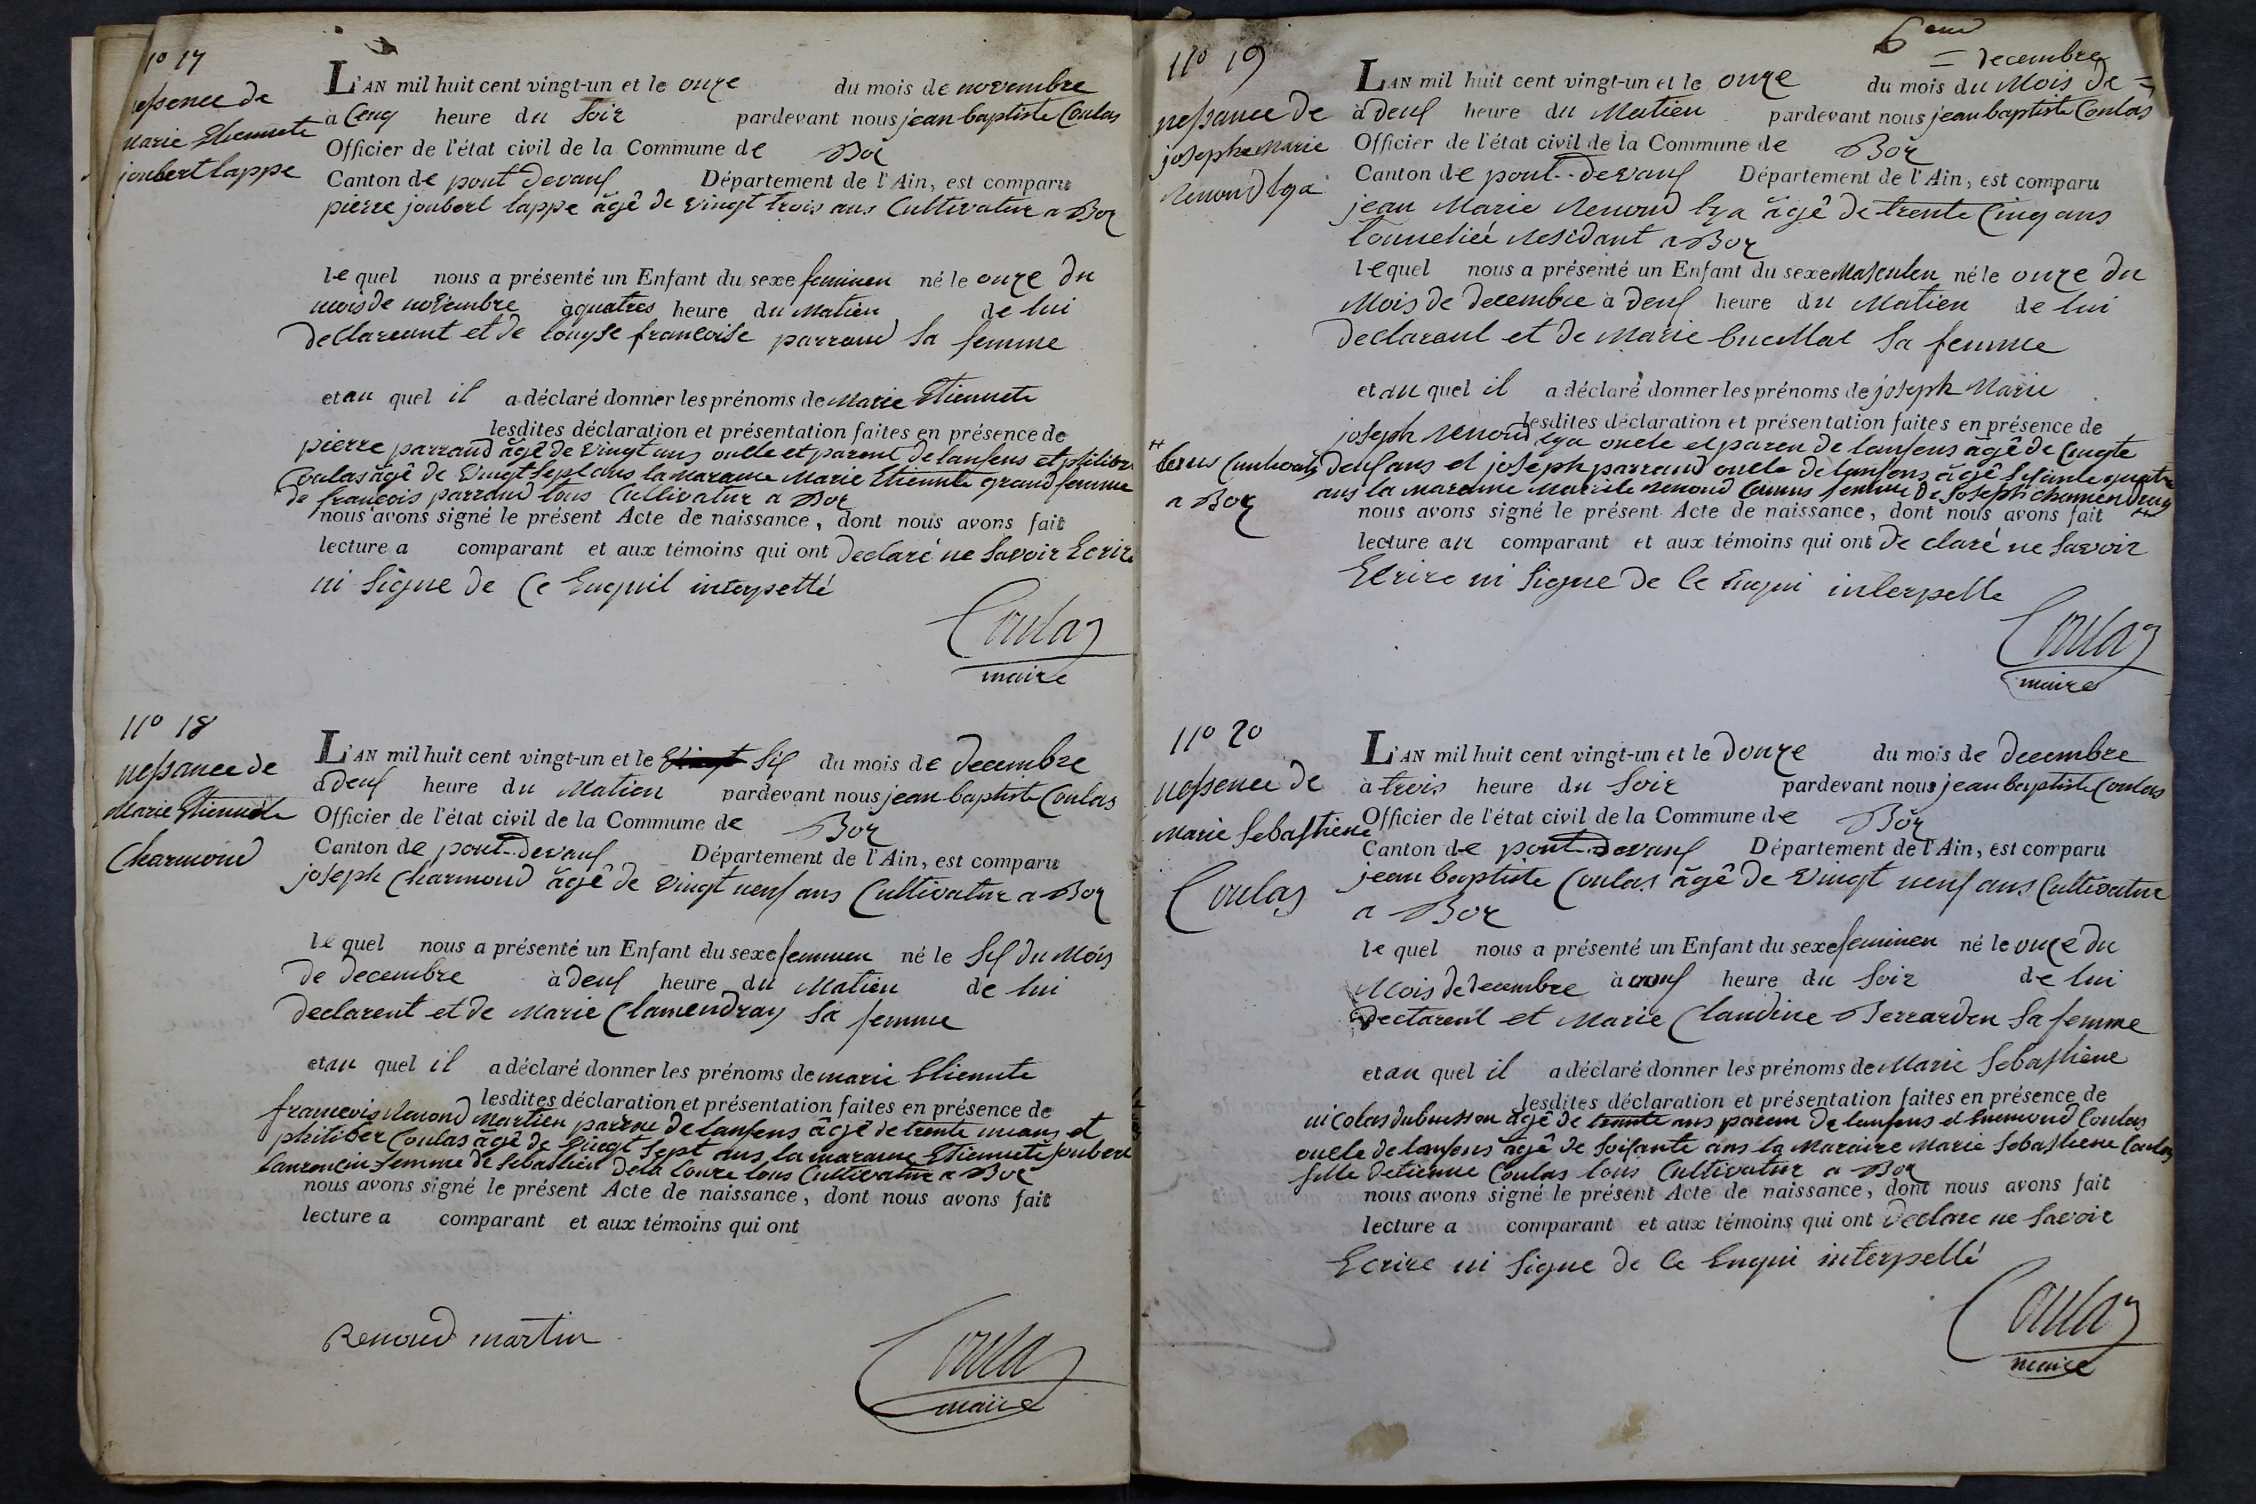 no 17
nessence de
Marie Etiennete
joubert lappe
L'AN mil huit cent vingt-un et le onze du mois de novembre
à Cenq heure du Soir pardevant nous jean baptiste Coulas
Officier de l'état civil de la Commune de Boz
Canton de pont devaux Département de l'Ain, est comparu
pierre joubert lappe âgé de vingt trois ans Cultivatur a Boz
le quel nous a présenté un Enfant du sexe feminen né le onze du
mois de novembre à quatres heure du Matien de lui
declareant et de louyse francoise parraud Sa femme
et au quel il a déclaré donner les prénoms de Marie Etiennete
lesdites déclaration et présentation faites en présence de
pierre parraud âgé de vingt ans oncle et parent de lanfens et philiber
Coulas âgé de vingt sept ans la marame Marie Etiennete grand femme
de francois parraud tous Cultivatur a Boz
nous avons signé le présent Acte de naissance, dont nous avons fait
lecture a comparant et aux témoins qui ont declaré ne Savoir Ecrire
ni Signe de Ce Enquil interpellé
Coulas
maire
no 18
nessance de
Marie Etiennete
Charmond
L'AN mil huit cent vingt-un et le vingt Six du mois de decembre
à deux heure du Matien pardevant nous jean baptiste Coulas
Officier de l'état civil de la Commune de Boz
Canton de pont-devaux Département de l'Ain, est comparu
joseph Charmond âgé de vingt neuf ans Cultivatur a Boz
le quel nous a présenté un Enfant du sexe femmen né le Six du Mois
de decembre à deux heure du Matien de lui
declarent et de Marie Clamendray Sa femme
et au quel il a déclaré donner les prénoms de marie Etiennete
lesdites déclaration et présentation faites en présence de
francois Renond Martien parene de lanfens âgé de trente un ans et
philiber Coulas âgé de vingt Sept ans la marame Etiennete joubert
femme de Sebastien dela loure tous Cultivatur a Boz
nous avons signé le présent Acte de naissance, dont nous avons fait
lecture a comparant et aux témoins qui ont
Renoud martin
Coulas
maire
6eme
no 19
nessance de
joseph Marie
Renoud lya
= decembre
L'AN mil huit cent vingt-un et le onze du mois du Mois de =
à deux heure du Matien pardevant nous jean baptiste Coulas
Officier de l'état civil de la Commune de Boz
Canton de pont-devaux Département de l'Ain, est comparu
jean Marie Renoud lya âgé de trente Cinq ans
tonnelieé Residant a Boz
le quel nous a présenté un Enfant du sexe Masculen né le onze du
Mois de decembre à deux heure du Matien de lui
declarant et de Marie bucillat Sa femme
et au quel il a déclaré donner les prénoms de joseph Marie
lesdites déclaration et présentation faites en présence de
joseph Renoud lya oncle et paren de lanfens âgé de Cinqte
deux ans et joseph parraud oncle de lanfens âgé Sisante quatre
ans la marame Renoud Camus femme de joseph chamendray
a Boz
nous avons signé le présent Acte de naissance, dont nous avons fait
lecture au comparant et aux témoins qui ont de claré ne Savoir
Ecrire ni Signe de Ce Enqui interpelle
Coulas
maire
no 20
nessence de
Marie Sebastiene
Coulas
L'AN mil huit cent vingt-un et le douze du mois de decembre
à trois heure du Soir pardevant nous jean baptiste Coulas
Officier de l'état civil de la Commune de Boz
Canton de pont-devaux Département de l'Ain, est comparu
jean baptiste Coulas âgé de vingt neuf ans Cultivatur
a Boz
le quel nous a présenté un Enfant du sexe feminen né le onze du
Mois de decembre à heure du Soir de lui
declarent et Marie Claudine Berrarden Sa femme
et au quel il a déclaré donner les prénoms de Marie Sebastiene
lesdites déclaration et présentation faites en présence de
nicolas dubuisson âgé de trante ans paren de lanfens et Enemond Coulas
oncle de lanfens âgé de Soisante ans la Maraire Marie Sebastiene Coulas
fille detienne Coulas tous Cultivatur a Boz
nous avons signé le présent Acte de naissance, dont nous avons fait
lecture a comparant et aux témoins qui ont declare ne Savoir
Ecrire ni Signe de Ce Enqui interpellé
Coulas
maire